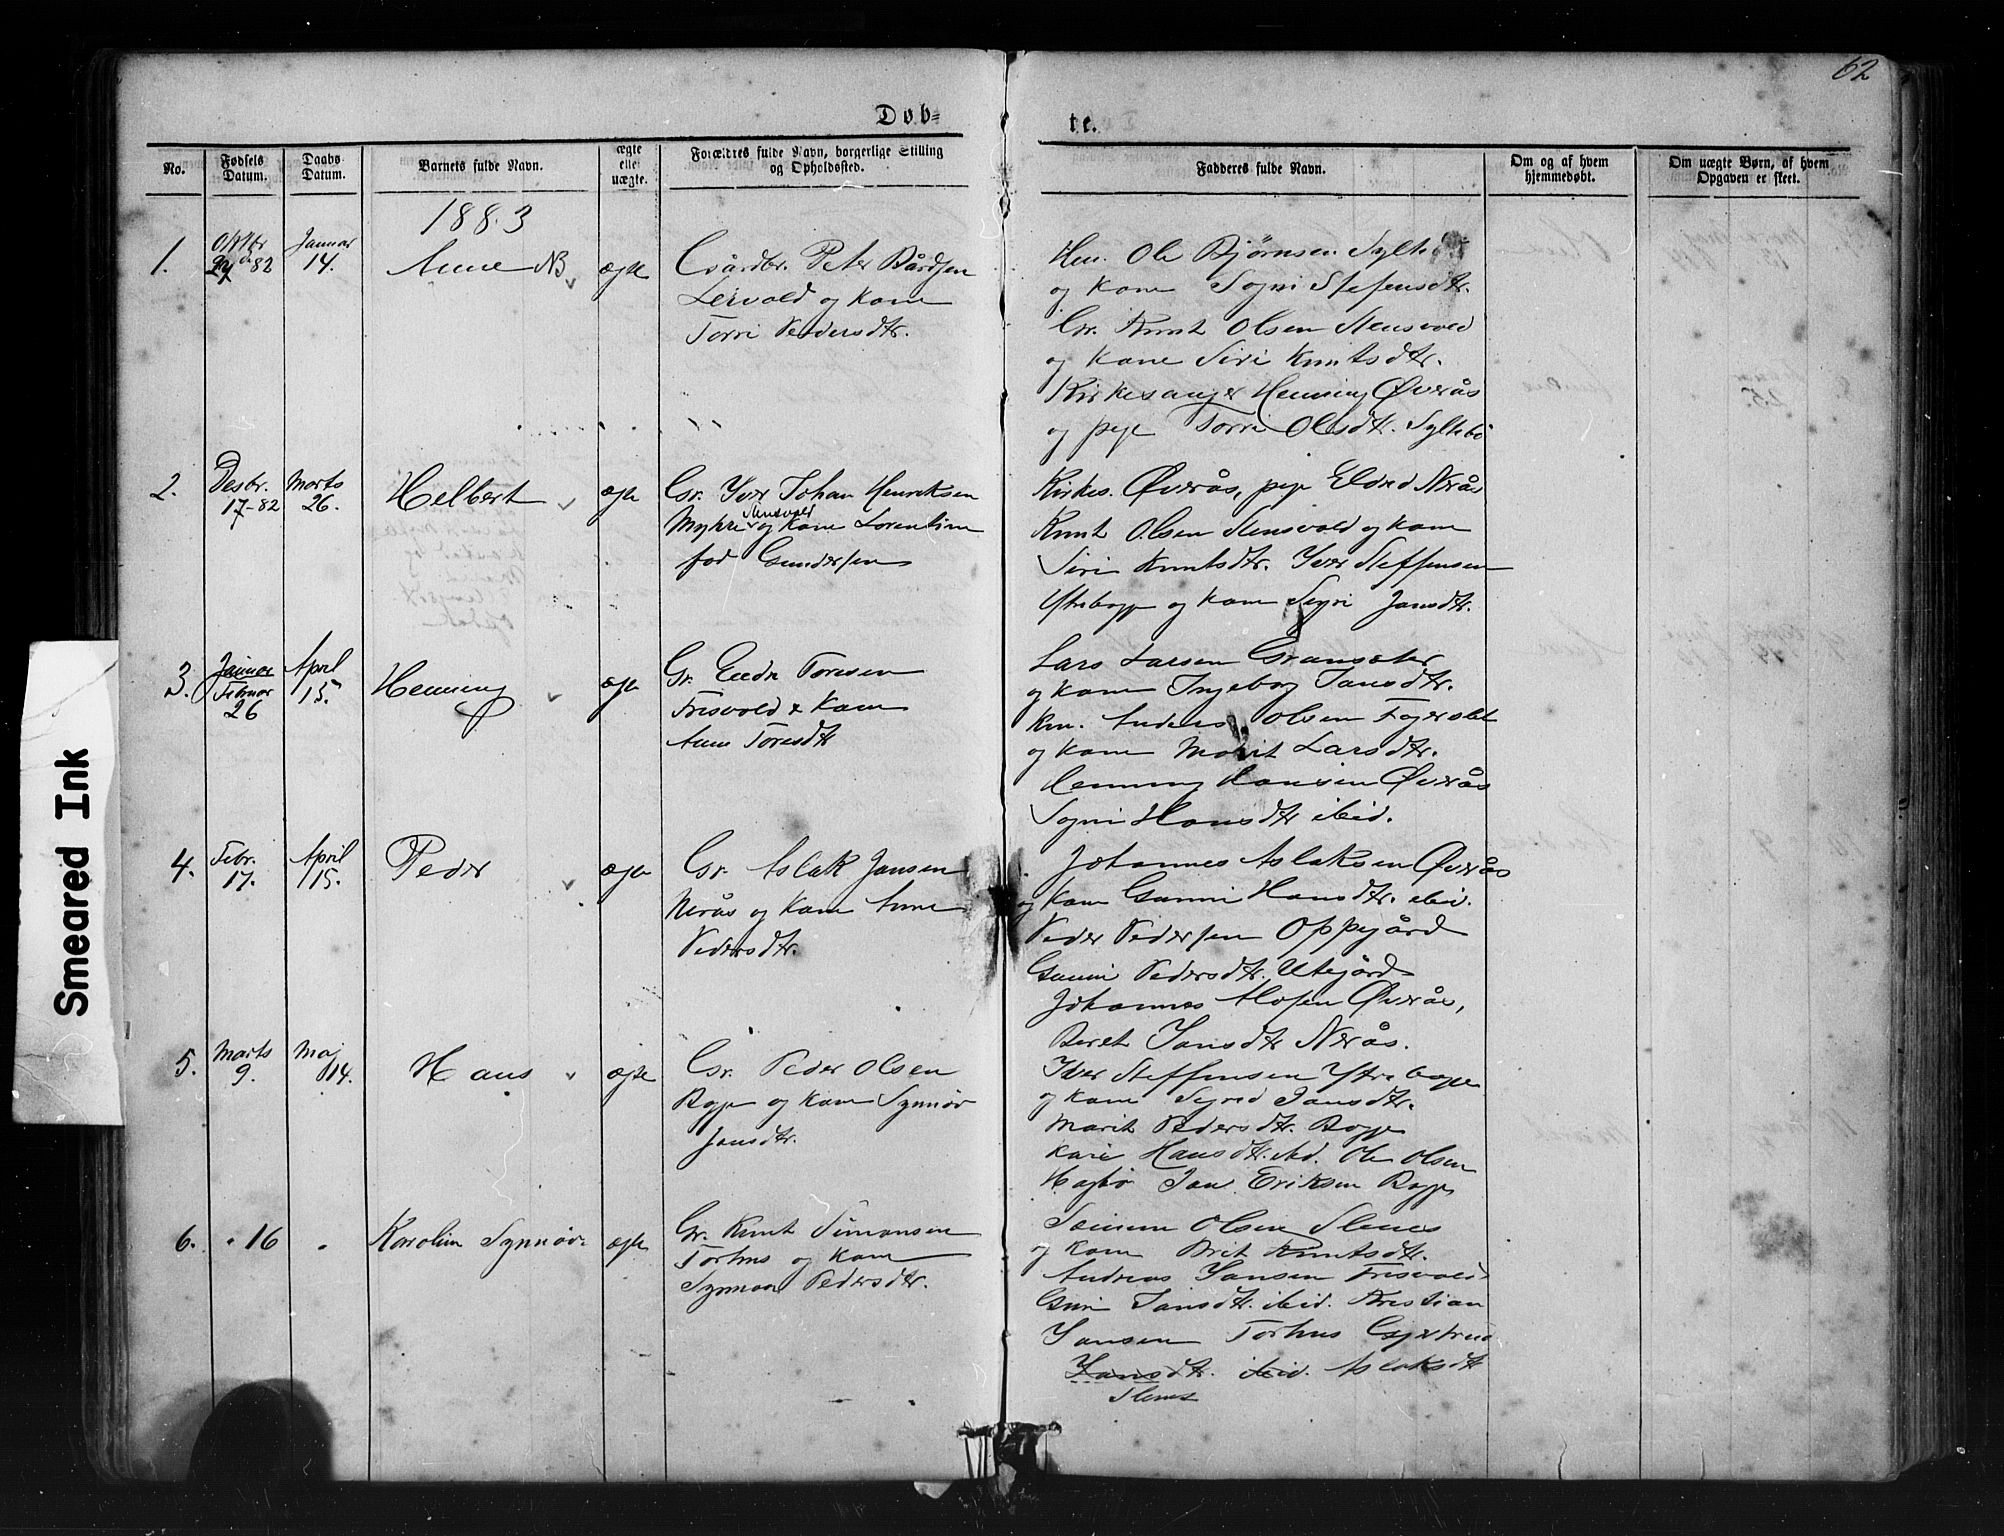 62
Døb=
te.
No.
Fødsels Datum.
Daabs Datum.
Barnets fulde Navn.
ægte eller uægte.
Forældres fulde Navn, borgerlige Stilling og Opholdssted.
Fadderes fulde Navn.
Om og af hvem hjemmedøbt.
Om uægte Børn, af hvem Opgaven er skeet.
1883
1.
82
Januar
14.
Anne NB
ægte
Gårdbr. Peter Bårdsen
Leirvold og Kone
Torri Pedersdtr.
Ole Bjørnsen
og Kone Sogni Stefensdtr.
Gr. Knut Olsen Stensvold
og Kone Siri Knutsdtr.
Kirkesanger Henning Øverås
og pige Torri Olsdtr. Syltebø
2.
Desbr.
17-82
Marts
26.
Helbert
ægte
Gr. Iver Johan Henriksen
Stensvold
Myhre og Kone Lorentine
fød Gundersen
Kirkes. Øverås, pige Nerås
Knut Olsen Stensvold og Kone
Siri Knutsdtr. Iver Steffensen
og Kone Jansdtr.
3.
Januar
Februar
26
April
15.
Henning
ægte
Gr. Endre Toresen
Frisvold & Kone
Anne Toresdtr
Lars Larsen Gransæter
og Kone Ingeborg Jansdtr.
Anders Olsen
og Kone Marit Larsdtr.
Henning Hansen Øverås
Sogni Hansdtr ibid.
4.
Febr.
17.
April
15.
Peder
ægte
Gr. Aslak Jansen
Nerås og Kone Anne
Pedersdtr.
Johannes Aslaksen Øverås
og Kone Gunni Hansdtr. ibid.
Peder Pedersen Oppigård
Gunni Pedersdtr. Utigård
Johannes Øverås,
Beret Jansdtr Nerås.
5.
Marts
9.
Maj
14.
Hans
ægte
Gr. Peder Olsen
Bogge og Kone Synnøv
Jansdtr.
Iver Steffensen Ytrebogge
og Kone Sigrid Jansdtr.
Marit Pedersdtr. Bogge
Kari Hansdtr. ibid. Ole Olsen
Jan Eriksen Bogge
6.
" 16
"
Karoline Synnøv
ægte
Gr. Knut Simonsen
Torhus og Kone
Synnøv Pedersdtr.
Olsen Slenes
og Kone Brit Knutsdtr.
Andreas Jansen Frisvold
Guri Jansdtr. ibid. Kristian
Jansen Torhus Gjertrud
Jansdtr. ibid. Aslaksdtr
Slenes
Smeared Ink